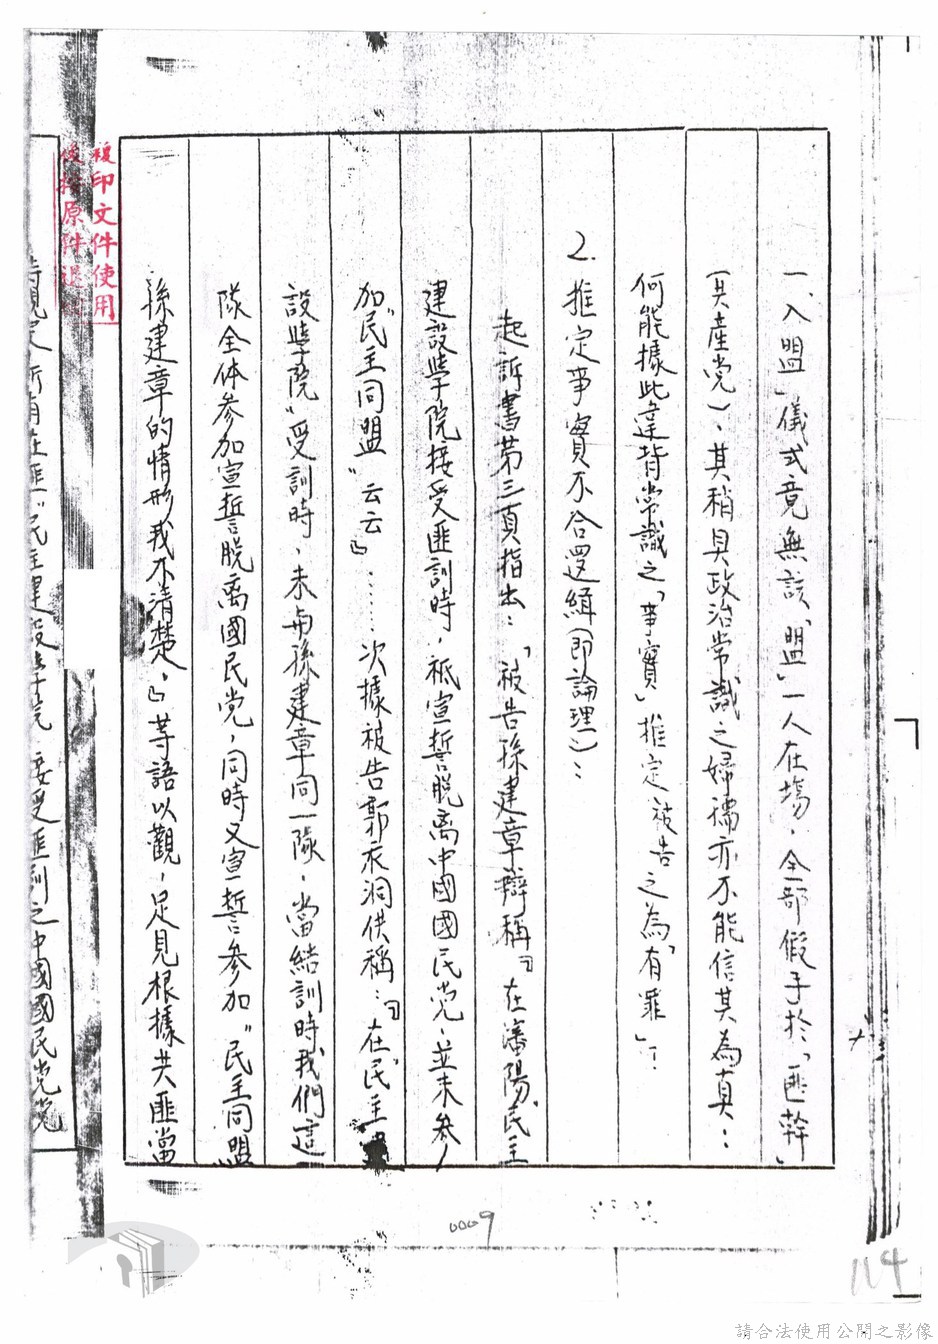 一、入盟」儀式竟無該「盟」一人在塲，全部假手於「匪幹」
(共產党)、其稍具政治常識之婦孺亦不能信其為真：
何能據此違背常識之「事實」推定被告之為「有罪」！
2. 推定事實不合逻緝(即論理)：
起訴書第三頁指出：「被告孫建章辯稱『在瀋陽民主
建設學院接受匪訓時，祗宣誓脫离中國國民党，並未參
加“民主同盟”云云』……次據被告郭永洞供稱：『在“民主
設學院”受訓時、未與孫建章同一隊，當結訓時我們這
隊全体参加宣誓脫离國民党，同時又宣誓参加“民主同盟
孫建章的情形我不清楚。』等語以觀，足見根據共匪當
時規定所有在匪“民主建設學院”接受匪訓之中國國民党党
複印文件使用
後將原件退
0009
114
請合法使用公開之影像